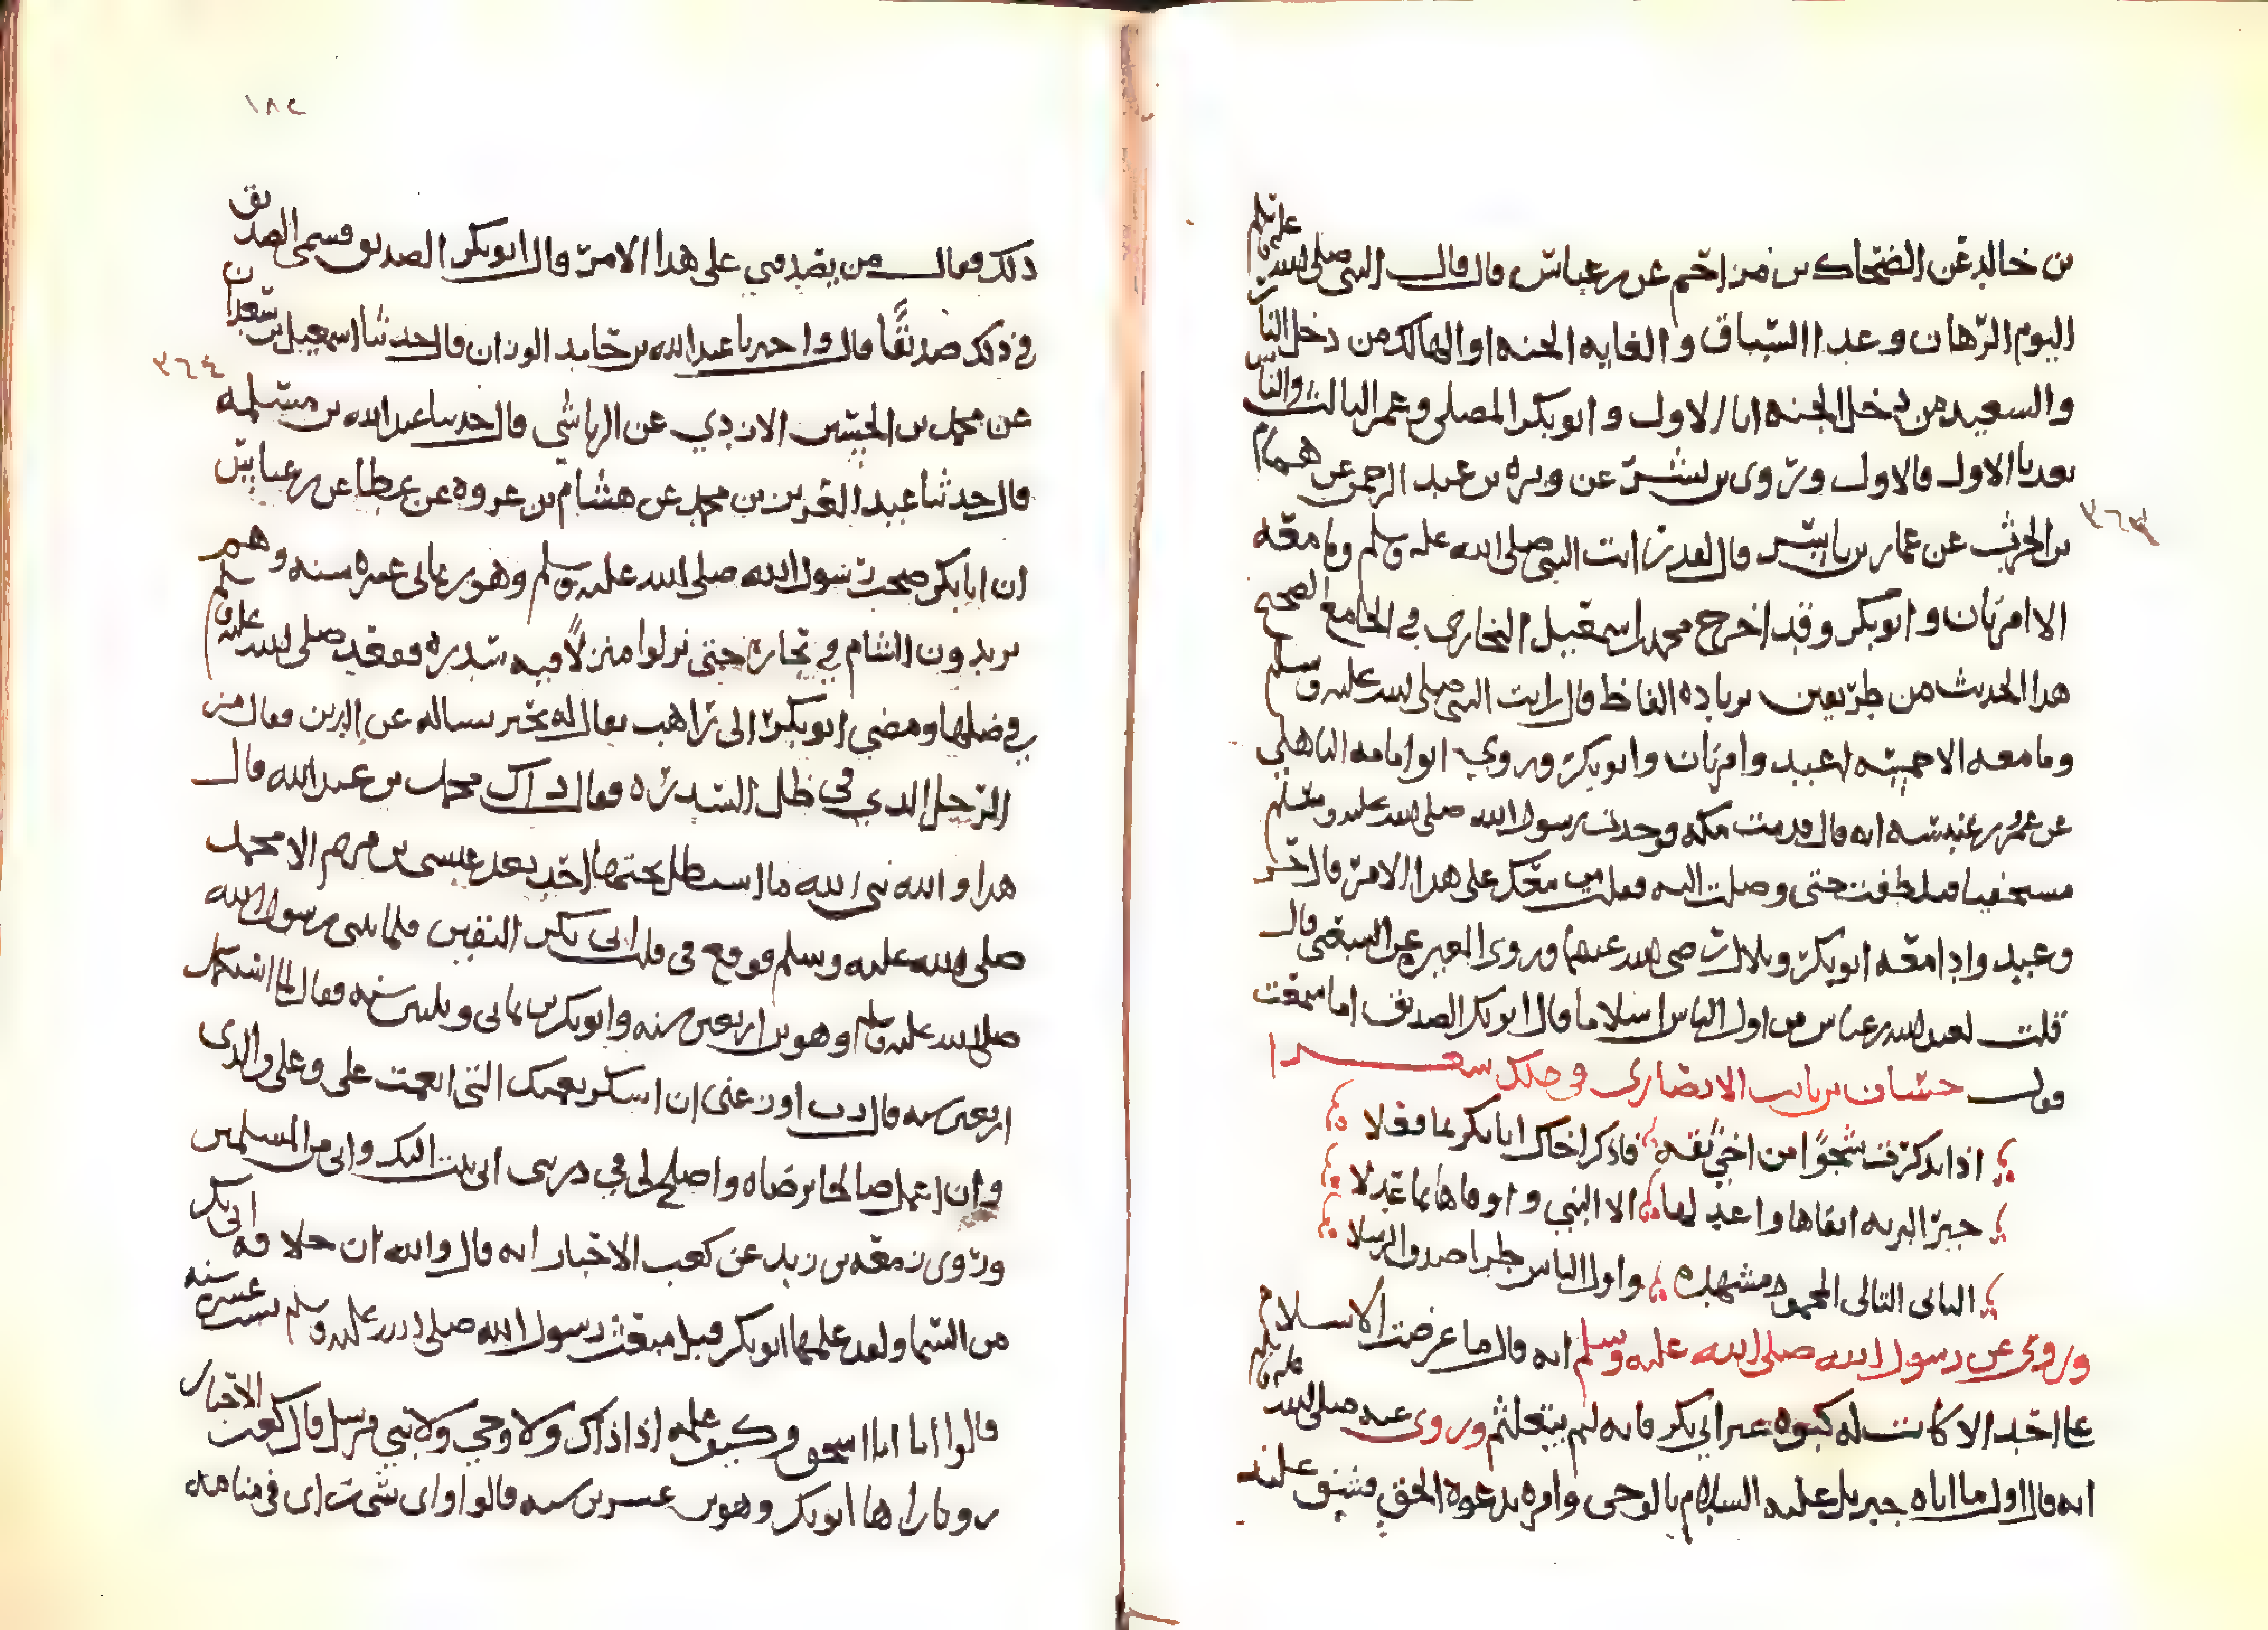 بن خالد عن الضحاك بن مزاحم عن بن عباس قال قال النبي صلى الله عليه وسلم
اليوم الرهان وغدا السباق والغايه الجنه او الهالك من دخل النار
والسعيد من دخل الجنه انا الاول وابو بكر المصلي وعمر الثالث والناس
بعدنا الاول فالاول وروى بن بشر عن وبره بن عبد الرحمن عن همام
بن الحرث عن عمار بن ياسر قال لقد رايت النبي صلى الله عليه وسلم وما معه
الا امراتان وابو بكر وقد اخرج محمد بن اسمعيل البخاري في الجامع الصحيح
هذا الحديث من طريقين بزياده الفاظ قال رايت النبي صلى الله عليه وسلم
وما معه الا خمسه اعبد وامراتان وابو بكر وروي ابو امامه الباهلي
عن عمرو بن عبسه انه قال قدمت مكه فوجدت رسول الله صلى الله عليه وسلم
مستخفيا فتلطفت حتى وصلت اليه فقلت من معك على هذا الامر قال حر
وعبد واذا معه ابو بكر وبلال رضى الله عنهما وروى المغيره عن الشعبي قال
قلت لعبد الله بن عباس من اول الناس اسلاما قال ابو بكر الصديق اما سمعت
قول حسان بن ثابت الانصارى في ذلك شعرا
اذا تذكرت شجوًا من اخي ثقه فاذكر اخاك ابا بكر بما فعلا
خير البريه اتقاها واعدلها الا النبي واوفاها بما حملا
الثانى التالى المحمود مشهده واول الناس طرا صدق الرسلا
وروى عن رسول الله صلى الله عليه وسلم انه قال ما عرضت الاسلام
على احد الا كانت له كبوه غير ابى بكر فانه لم يتعلثم وروى عنه صلى الله عليه وسلم
انه قال اول ما اتاه جبريل عليه السلام بالوحى وامره بدعوة الحق فشق عليه
١٨٤
ذلك فقال من يصدقني على هذا الامر قال ابو بكر الصديق فسمى الصديق
في ذلك صديقًا قال واخبرنا عبد الله بن حامد الوزان قال حدثنا اسمعيل بن سعدان
عن محمد بن الحسين الازدي عن الرياشي قال حدثنا عبد الله بن مسلمه
قال حدثنا عبد العزيز بن محمد عن هشام بن عروه عن عطا عن بن عباس
ان ابا بكر صحب رسول الله صلى الله عليه وسلم وهو بن ثمانى عشره سنه وهم
يريدون الشام في تجاره حتى نزلوا منزلًا فيه سدره فقعد صلى الله عليه وسلم
في ظلها ومضى ابو بكر الى راهب يقال له بحير يساله عن الدين فقال من
الرجل الذي في ظل السدره فقال ذاك محمد بن عبد الله قال
هذا والله نبى الله ما استظل تحتها احد بعد عيسى بن مريم الا محمد
صلى الله عليه وسلم فوقع في قلب ابى بكر اليقين فلما نبى رسول الله
صلى الله عليه وسلم وهو بن اربعين سنه وابو بكر بن ثمانى وثلثين سنه فقال لما استكمل
اربعين سنه قال رب اوزعنى ان اشكر نعمتك التى انعمت على وعلى والدى
وان اعمل صالحا ترضاه واصلح لي في ذريتى انى تبت اليك وانى من المسلمين
وروى زمعه بن زيد عن كعب الاحبار انه قال والله ان خلافه ابى بكر
من السما ولقد علمها ابو بكر قبل مبعث رسول الله صلى الله عليه وسلم بست عشره سنه
قالوا انا ابا اسحق وكيف علمه اذ اذاك ولا وحي ولا نبي مرسل قال كعب الاحبار
رويا راها ابو بكر وهو بن عشرين سنه قالوا واى شى راى في منامه
٣٦٣
٣٦٤